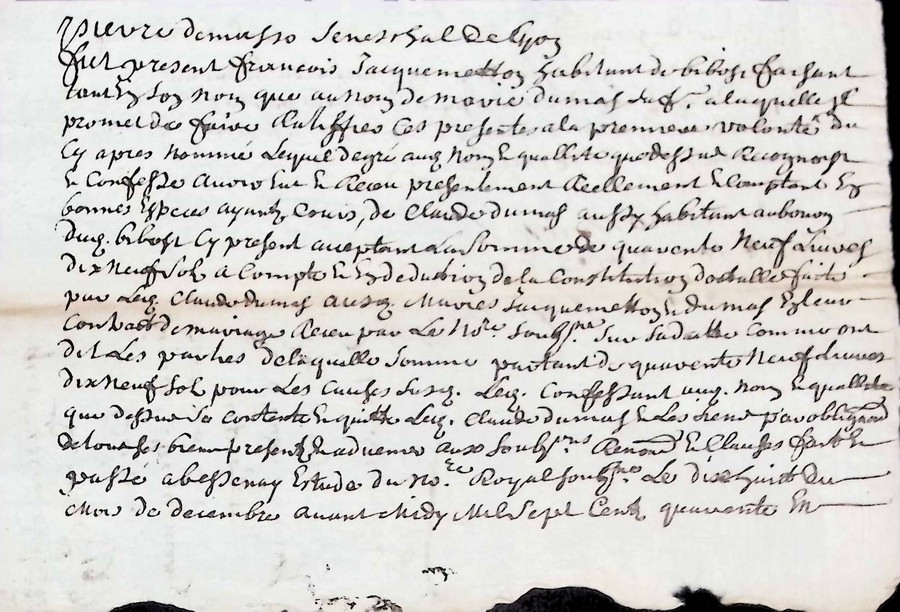 pierre demasso seneschal de Lyon
fut present françois Jacquemetton habitant de bibost faisant
tant en son nom que au nom de marie dumas sa fe. a laquelle Il
promet de faire Ratiffier Ces presentes a la premiere volonté du
Cy apres nommé Lequel de gré auq nom & quallité que dessus Recognoist
& Confesse avoir Eut & Receu presentement Reellement & Comptant En
bonnes Especes ayantz Cours, de Claude dumas aussy habitant au
duq. bibost Cy present acceptant La Somme de quarente Neuf Livres
dix Neuf Solz a Compte & En deduction de la Constitution dotalle faite
par Led. Claude dumas ausd. Mariés Jacquemetton & dumas En leur
Contract de mariage Receu par Le Nore Soubsne Sur Sa datte Comme ont
dit Les parties de laquelle Somme partant de quarente Neuf Livres
dix Neuf Solz pour Les Causes Susd. Led. Confessant auq. Nom & quallité
que dessus Se contente & quitte Led. Claude dumas & Les Siens par obligaon
de tous Ses biens presentz & advenir aux Soubsons Renonons & Clauses fait &
passé a bessenay Estude du Nore Royal Soubsne Le dix huit du
Mois de decembre avant Midy Mil Sept Centz quarente &